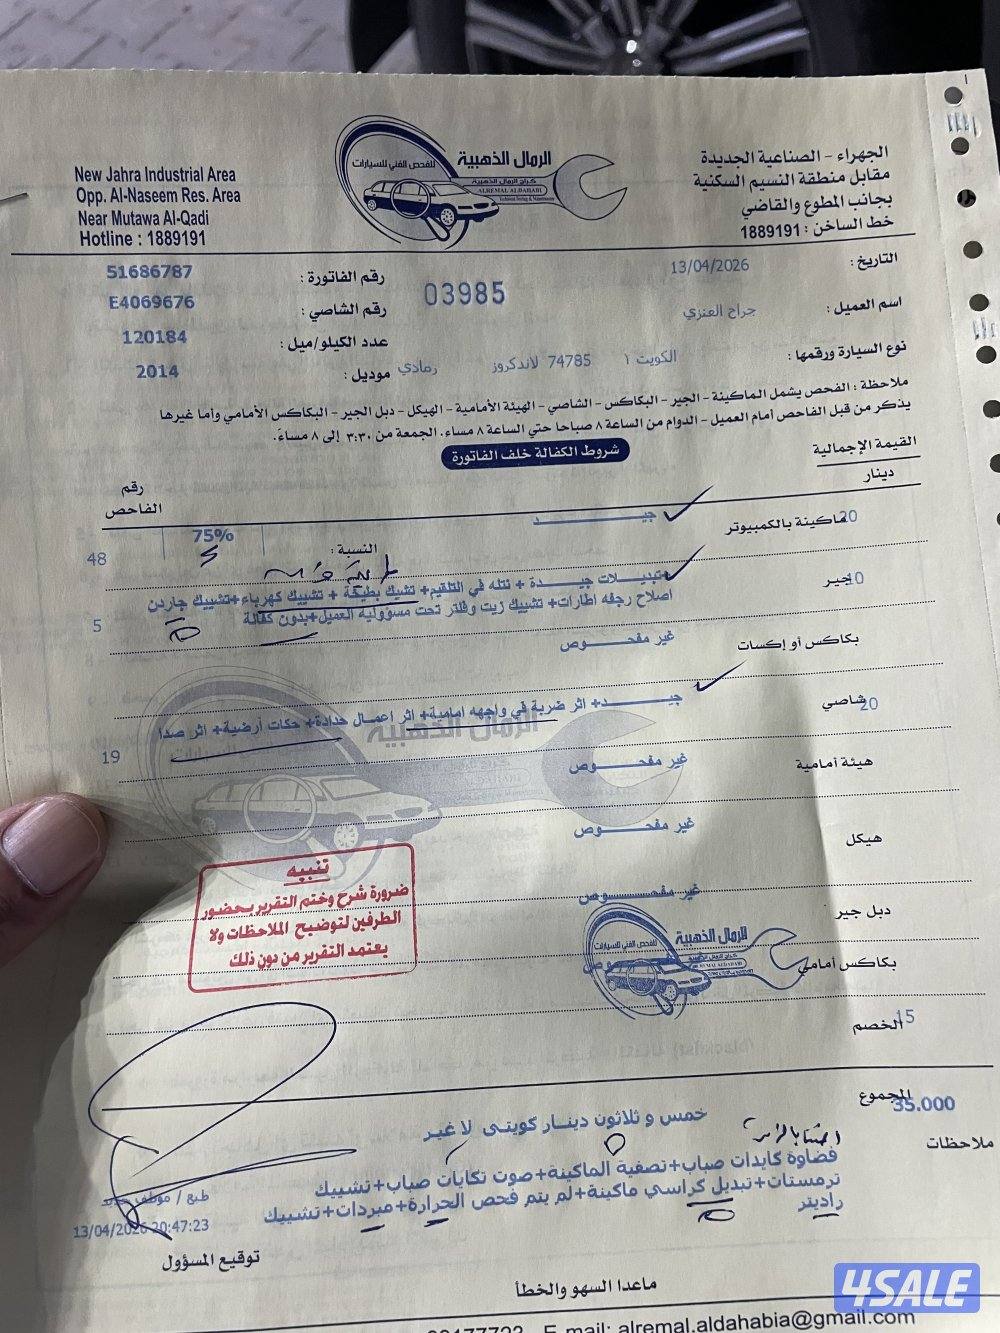 New Jahra Industrial Area
Opp. Al-Naseem Res. Area
Near Mutawa Al-Qadi
Hotline : 1889191
الرمال الذهبية
للفحص الفني للسيارات
كراج الرمال الذهبية
ALREMAL ALDAHABI
الجهراء - الصناعية الجديدة
مقابل منطقة النسيم السكنية
بجانب المطوع والقاضي
خط الساخن : 1889191
التاريخ : 13/04/2026
رقم الفاتورة : 51686787
03985
اسم العميل : جراح العنزي
رقم الشاصي : E4069676
عدد الكيلو/ميل : 120184
نوع السيارة ورقمها : الكويت ١ 74785 لاندكروز رمادي
موديل : 2014
ملاحظة : الفحص يشمل الماكينة - الجير - البكاكس - الشاصي - الهيئة الأمامية - الهيكل - دبل الجير - البكاكس الأمامي وأما غيرها
يذكر من قبل الفاحص أمام العميل - الدوام من الساعة ٨ صباحا حتي الساعة ٨ مساء، الجمعة من ٣:٣٠ إلى ٨ مساءً.
شروط الكفالة خلف الفاتورة
القيمة الإجمالية
دينار
رقم
الفاحص
ماكينة بالكمبيوتر 20
جيــــــد
النسبة : 75%
48
جير 10
تبديلات جيــدة + نتله في التلقيم+ تشيك بطيخة + تشييك كهرباء+تشييك جاردن
اصلاح رجفه اطارات+ تشييك زيت وفلتر تحت مسؤولية العميل+بدون كفالة
5
بكاكس أو إكسات
غير مفحـــوص
شاصي 20
جيــــد+ اثر ضربة في واجهه امامية+ اثر اعمال حدادة+ حكات أرضية+ اثر صدا
19
هيئة أمامية
غير مفحـــوص
هيكل
غير مفحـــوص
دبل جير
غير مفحـــوص
بكاكس أمامي
الرمال الذهبية
للفحص الفني للسيارات
تنبيه
ضرورة شرح وختم التقرير بحضور
الطرفين لتوضيح الملاحظات ولا
يعتمد التقرير من دون ذلك
الخصم 15
المجموع 35.000
خمس و ثلاثون دينار كويتى لا غير
ملاحظات
فضاوة كايدات صباب+تصفية الماكينة+صوت تكايات صباب+تشييك
ترمستات+تبديل كراسي ماكينة+لم يتم فحص الحرارة+مبردات+تشييك
راديتر
طبع / موظف جديد
13/04/2026 20:47:23
توقيع المسؤول
ماعدا السهو والخطأ
E-mail: alremal.aldahabia@gmail.com
4SALE